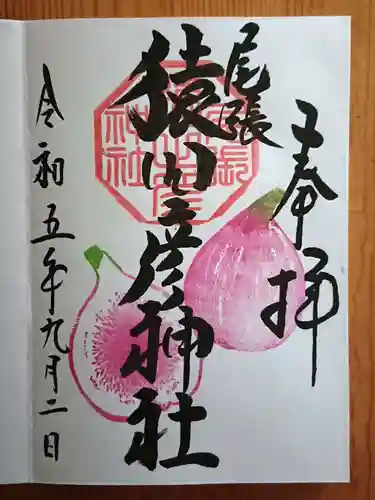 奉拝
尾張
猿田彦神社
令和五年九月二日